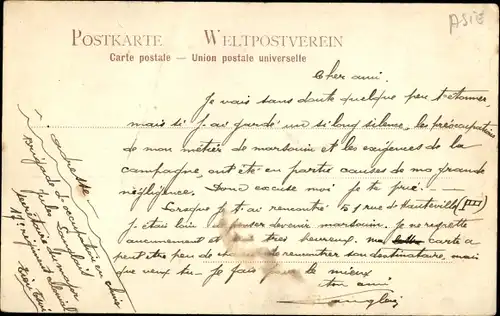 ASIE
POSTKARTE WELTPOSTVEREIN
Carte postale — Union postale universelle
Cher ami.
Je vais sans doute quelque peu t'etonner
mais si j'ai gardé un si long silence, les préoccupations
de mon métier de marsouin et les exigences de la
campagne, ont été en partie causes de ma grande
négligence. Donc excuse moi je te prie.
Lorsque je t'ai rencontré 51 rue de Hauteville (III)
j'étais loin de devenir marsouin. Je ne regrette
aucunement et très heureux. ma carte a
peut être peu de rencontrer son destinataire, mais
que veux tu. Je fais le mieux
ton ami
Langlois
Brigade d'occupation en Chine
17e régiment colonial